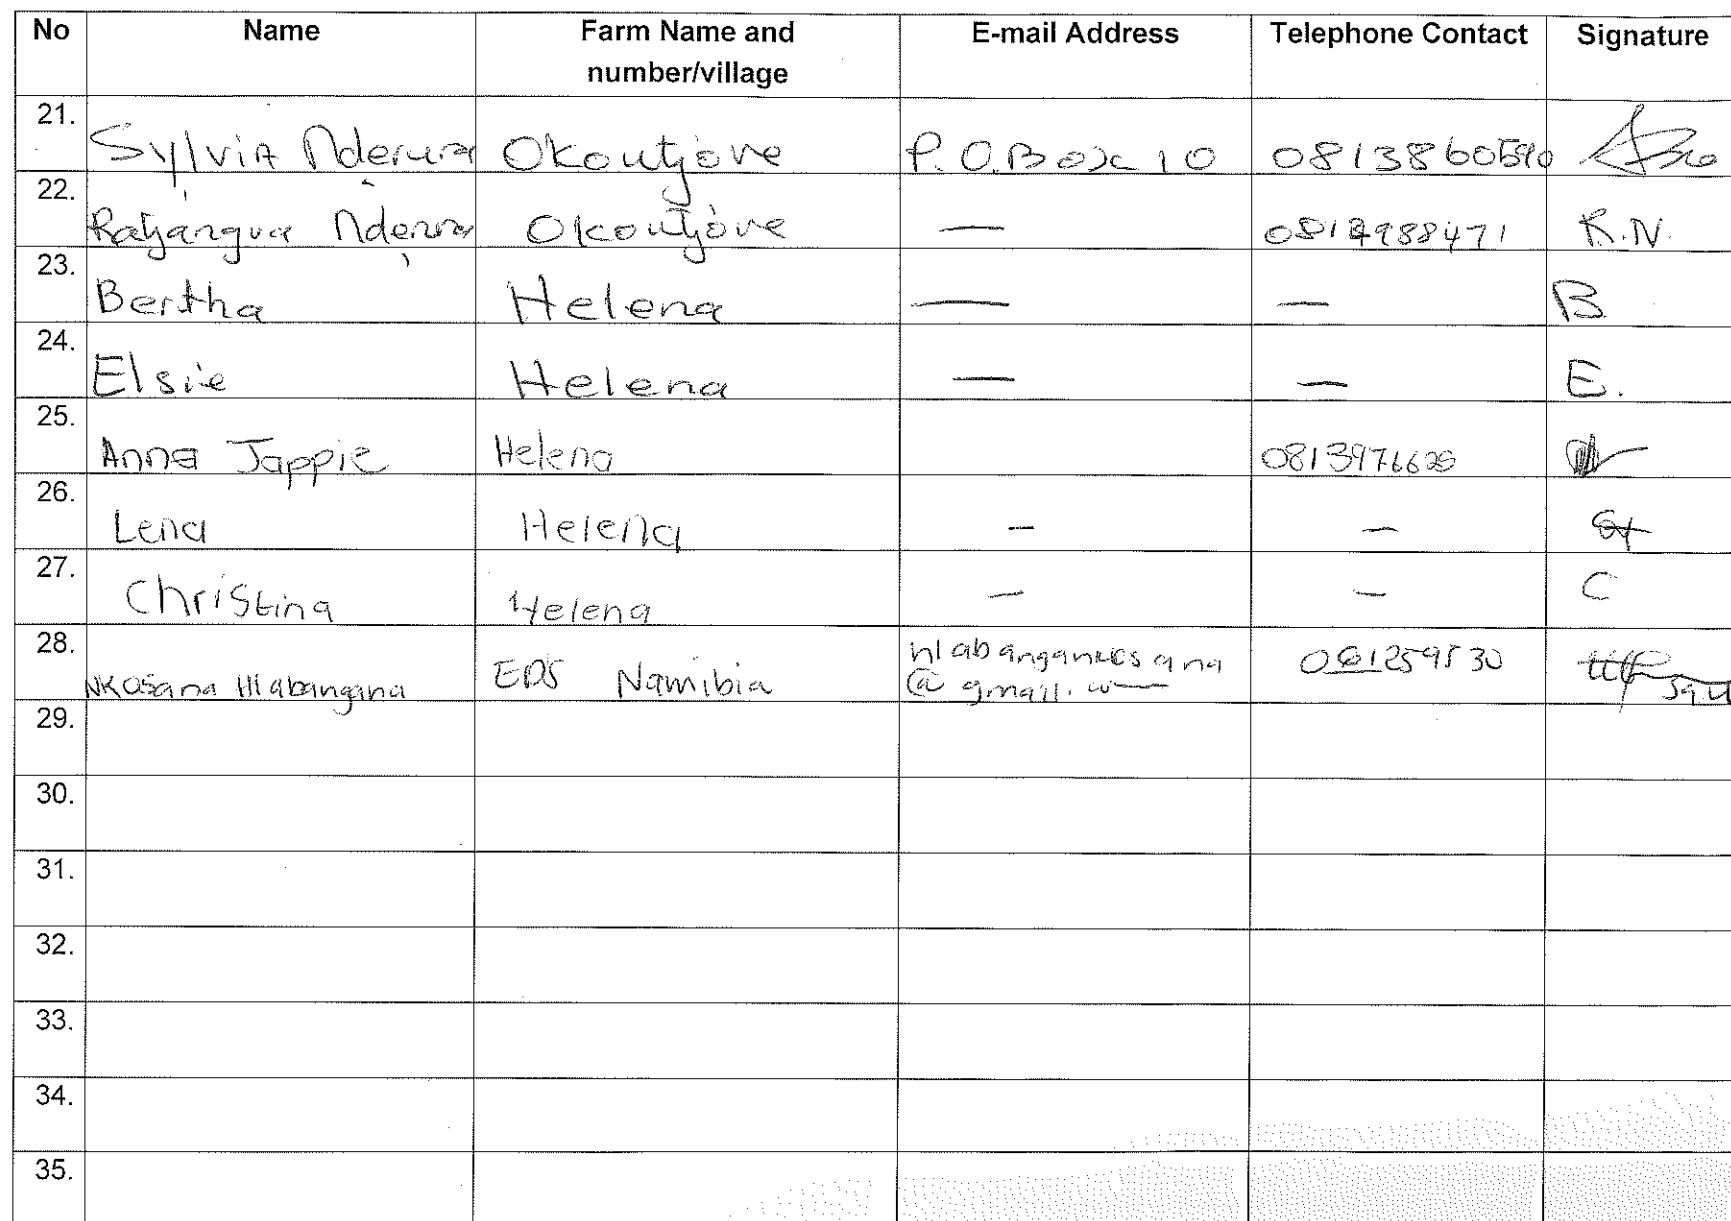 No Name Farm Name and number/village E-mail Address Telephone Contact Signature
21. Sylvia Nderura Okoutjove P.O.Box 10 0813860590
22. Ratjangua Nderura Okoutjove — R.N.
23. Bertha Helena — — B
24. Elsie Helena — — E.
25. Anna Jappie Helena
26. Lena Helena – –
27. Christina Helena – – C
28. Nkosana Hlabangana EDS Namibia 061259530
@gmail.
29.
30.
31.
32.
33.
34.
35.